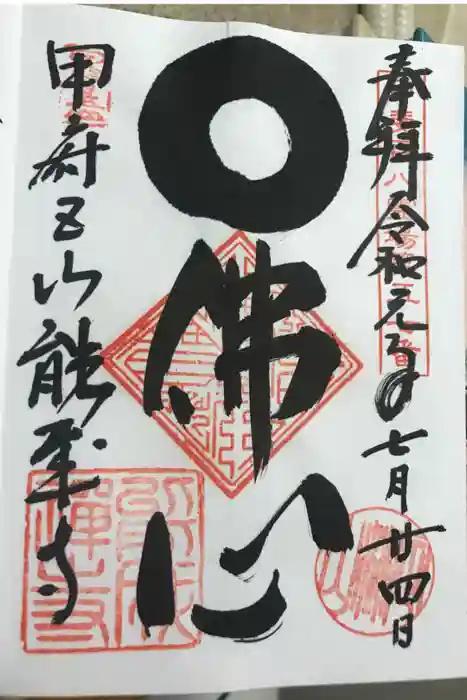 奉拝 令和元年七月廿四日
佛心
甲府五山能成寺